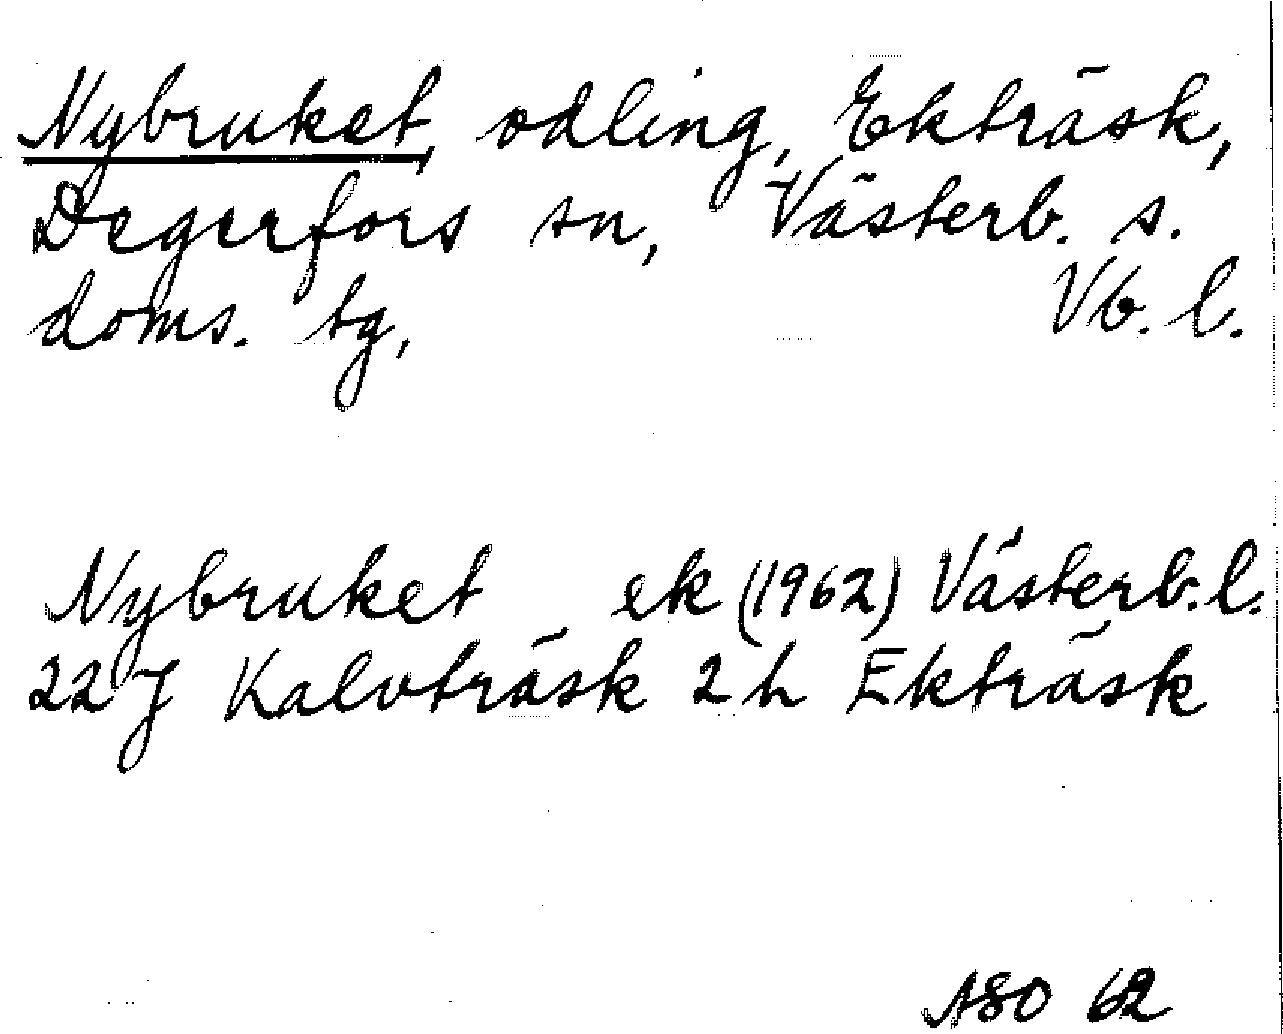 Nybruket, odling, Ekträsk,
Degerfors sn, Västerb. s.
doms. tg, Vb. l.
Nybruket ek (1962) Västerb. l.
22 J Kalvträsk 2 h Ekträsk
ASO 62